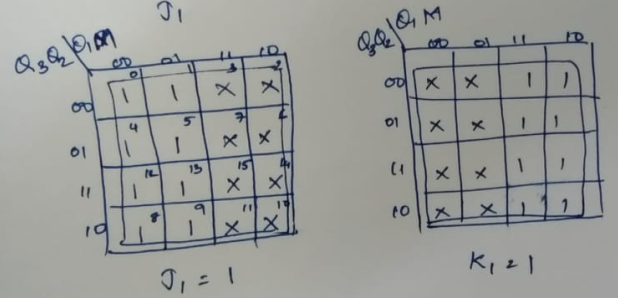 J₁
Q₃Q₂ \ Q₁M 00 01 11 10
00 1 0 1 1 X 3 X 2
01 1 4 1 5 X 7 X 6
11 1 12 1 13 X 15 X 14
10 1 8 1 9 X 11 X 10
J₁ = 1
Q₃Q₂ \ Q₁M 00 01 11 10
00 X X 1 1
01 X X 1 1
11 X X 1 1
10 X X 1 1
K₁ = 1